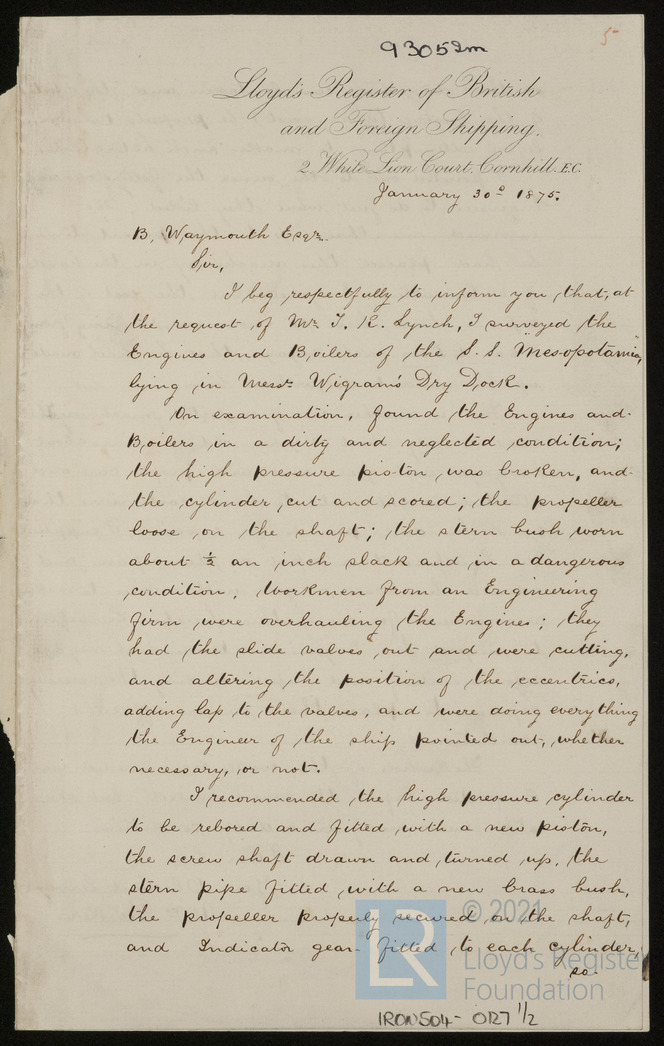 5
93052m
Lloyd's Register of British
and Foreign Shipping.
2, White Lion Court, Cornhill. E.C.
January 30º 1875.
B. Waymouth Esqre.
Sir,
I beg respectfully to inform you that, at
the request of Mr. T. K. Lynch, I surveyed the
Engines and Boilers of the S. S. "Mesopotamia,"
lying in Messrs Wigram's Dry Dock.
On examination, found the Engines and
Boilers in a dirty and neglected condition;
the high pressure piston was broken, and
the cylinder cut and scored; the propeller
loose on the shaft; the stern bush worn
about ½ an inch slack and in a dangerous
condition. Workmen from an Engineering
firm were overhauling the Engines; they
had the slide valves out and were cutting,
and altering the position of the eccentrics,
adding lap to the valves, and were doing everything
the Engineer of the ship pointed out, whether
necessary, or not.
I recommended the high pressure cylinder
to be rebored and fitted with a new piston,
the screw shaft drawn and turned up, the
stern pipe fitted with a new brass bush,
the propeller properly secured on the shaft,
and Indicator gear fitted to each cylinder,
so
LR
© 2021
Lloyd's Register
Foundation
IRON504-0127 1/2